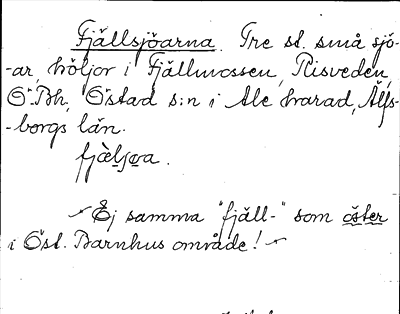 Fjällsjöarna. Tre st. små sjö-
-ar, höljor i Fjällmossen, Risveden,
Ö. Bh, Östad s:n i Ale härad, Älfs-
-borgs län.
fjælsjøa.
Ej samma "fjäll-" som öster
i Öst. Barnhus område!